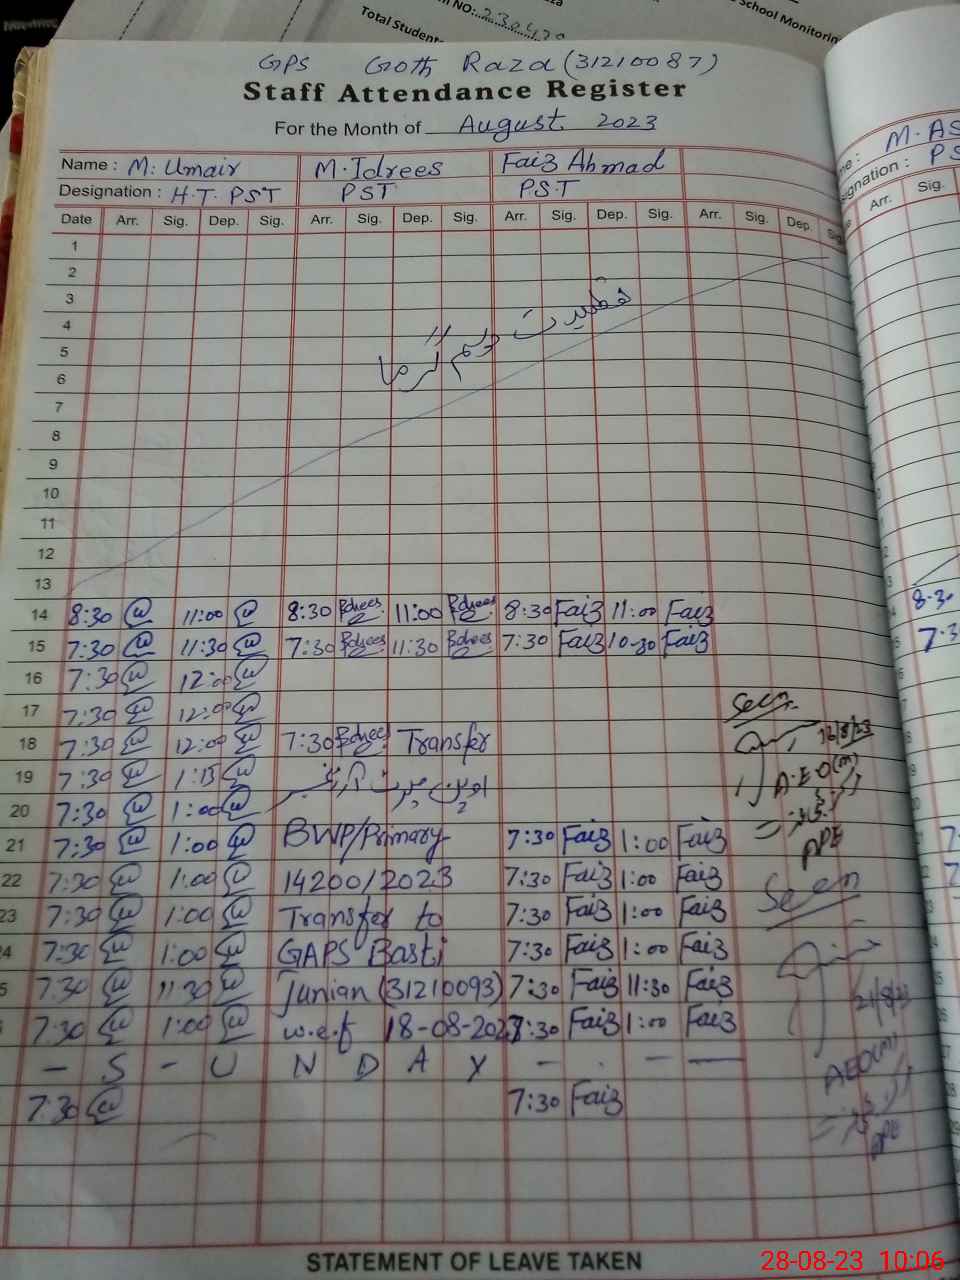 NO:..230420
School Monitorin
Total Students
GPS Goth Raza (31210087)
Staff Attendance Register
For the Month of August 2023
Name : M. Umair M. Idrees Faiz Ahmad
Designation : H.T. PST PST P.S.T
Date Arr. Sig. Dep. Sig. Arr. Sig. Dep. Sig. Arr. Sig. Dep. Sig. Arr. Sig. Dep. Sig.
M. AS
signation : PS
Arr. Sig.
1
2
3
4
تعطیلات موسم گرما
5
6
7
8
9
10
11
12
13
14 8:30 11:00 8:30 Idrees 11:00 Idrees 8:30 Faiz 11:00 Faiz 8:30
15 7:30 11:30 7:30 Idrees 11:30 Idrees 7:30 Faiz 10:30 Faiz 7:3
16 7:30 12:00
17 7:30 12:00
Seen
18 7:30 12:00 7:30 Idrees Transfer
19 7:30 1:15 اوپن میرٹ
A.E.O(M)
20 7:30 1:00
21 7:30 1:00 BWP/Primary 7:30 Faiz 1:00 Faiz
22 7:30 1:00 14200/2023 7:30 Faiz 1:00 Faiz
Seen
23 7:30 1:00 Transfer to 7:30 Faiz 1:00 Faiz
24 7:30 1:00 GAPS Basti 7:30 Faiz 1:00 Faiz
5 7:30 11:30 Junian (31210093) 7:30 Faiz 11:30 Faiz
7:30 1:00 w.e.f 18-08-2023 7:30 Faiz 1:00 Faiz
– S – U N D A Y – . – —
AEO(M)
7:30 7:30 Faiz
STATEMENT OF LEAVE TAKEN
28-08-23 10:06